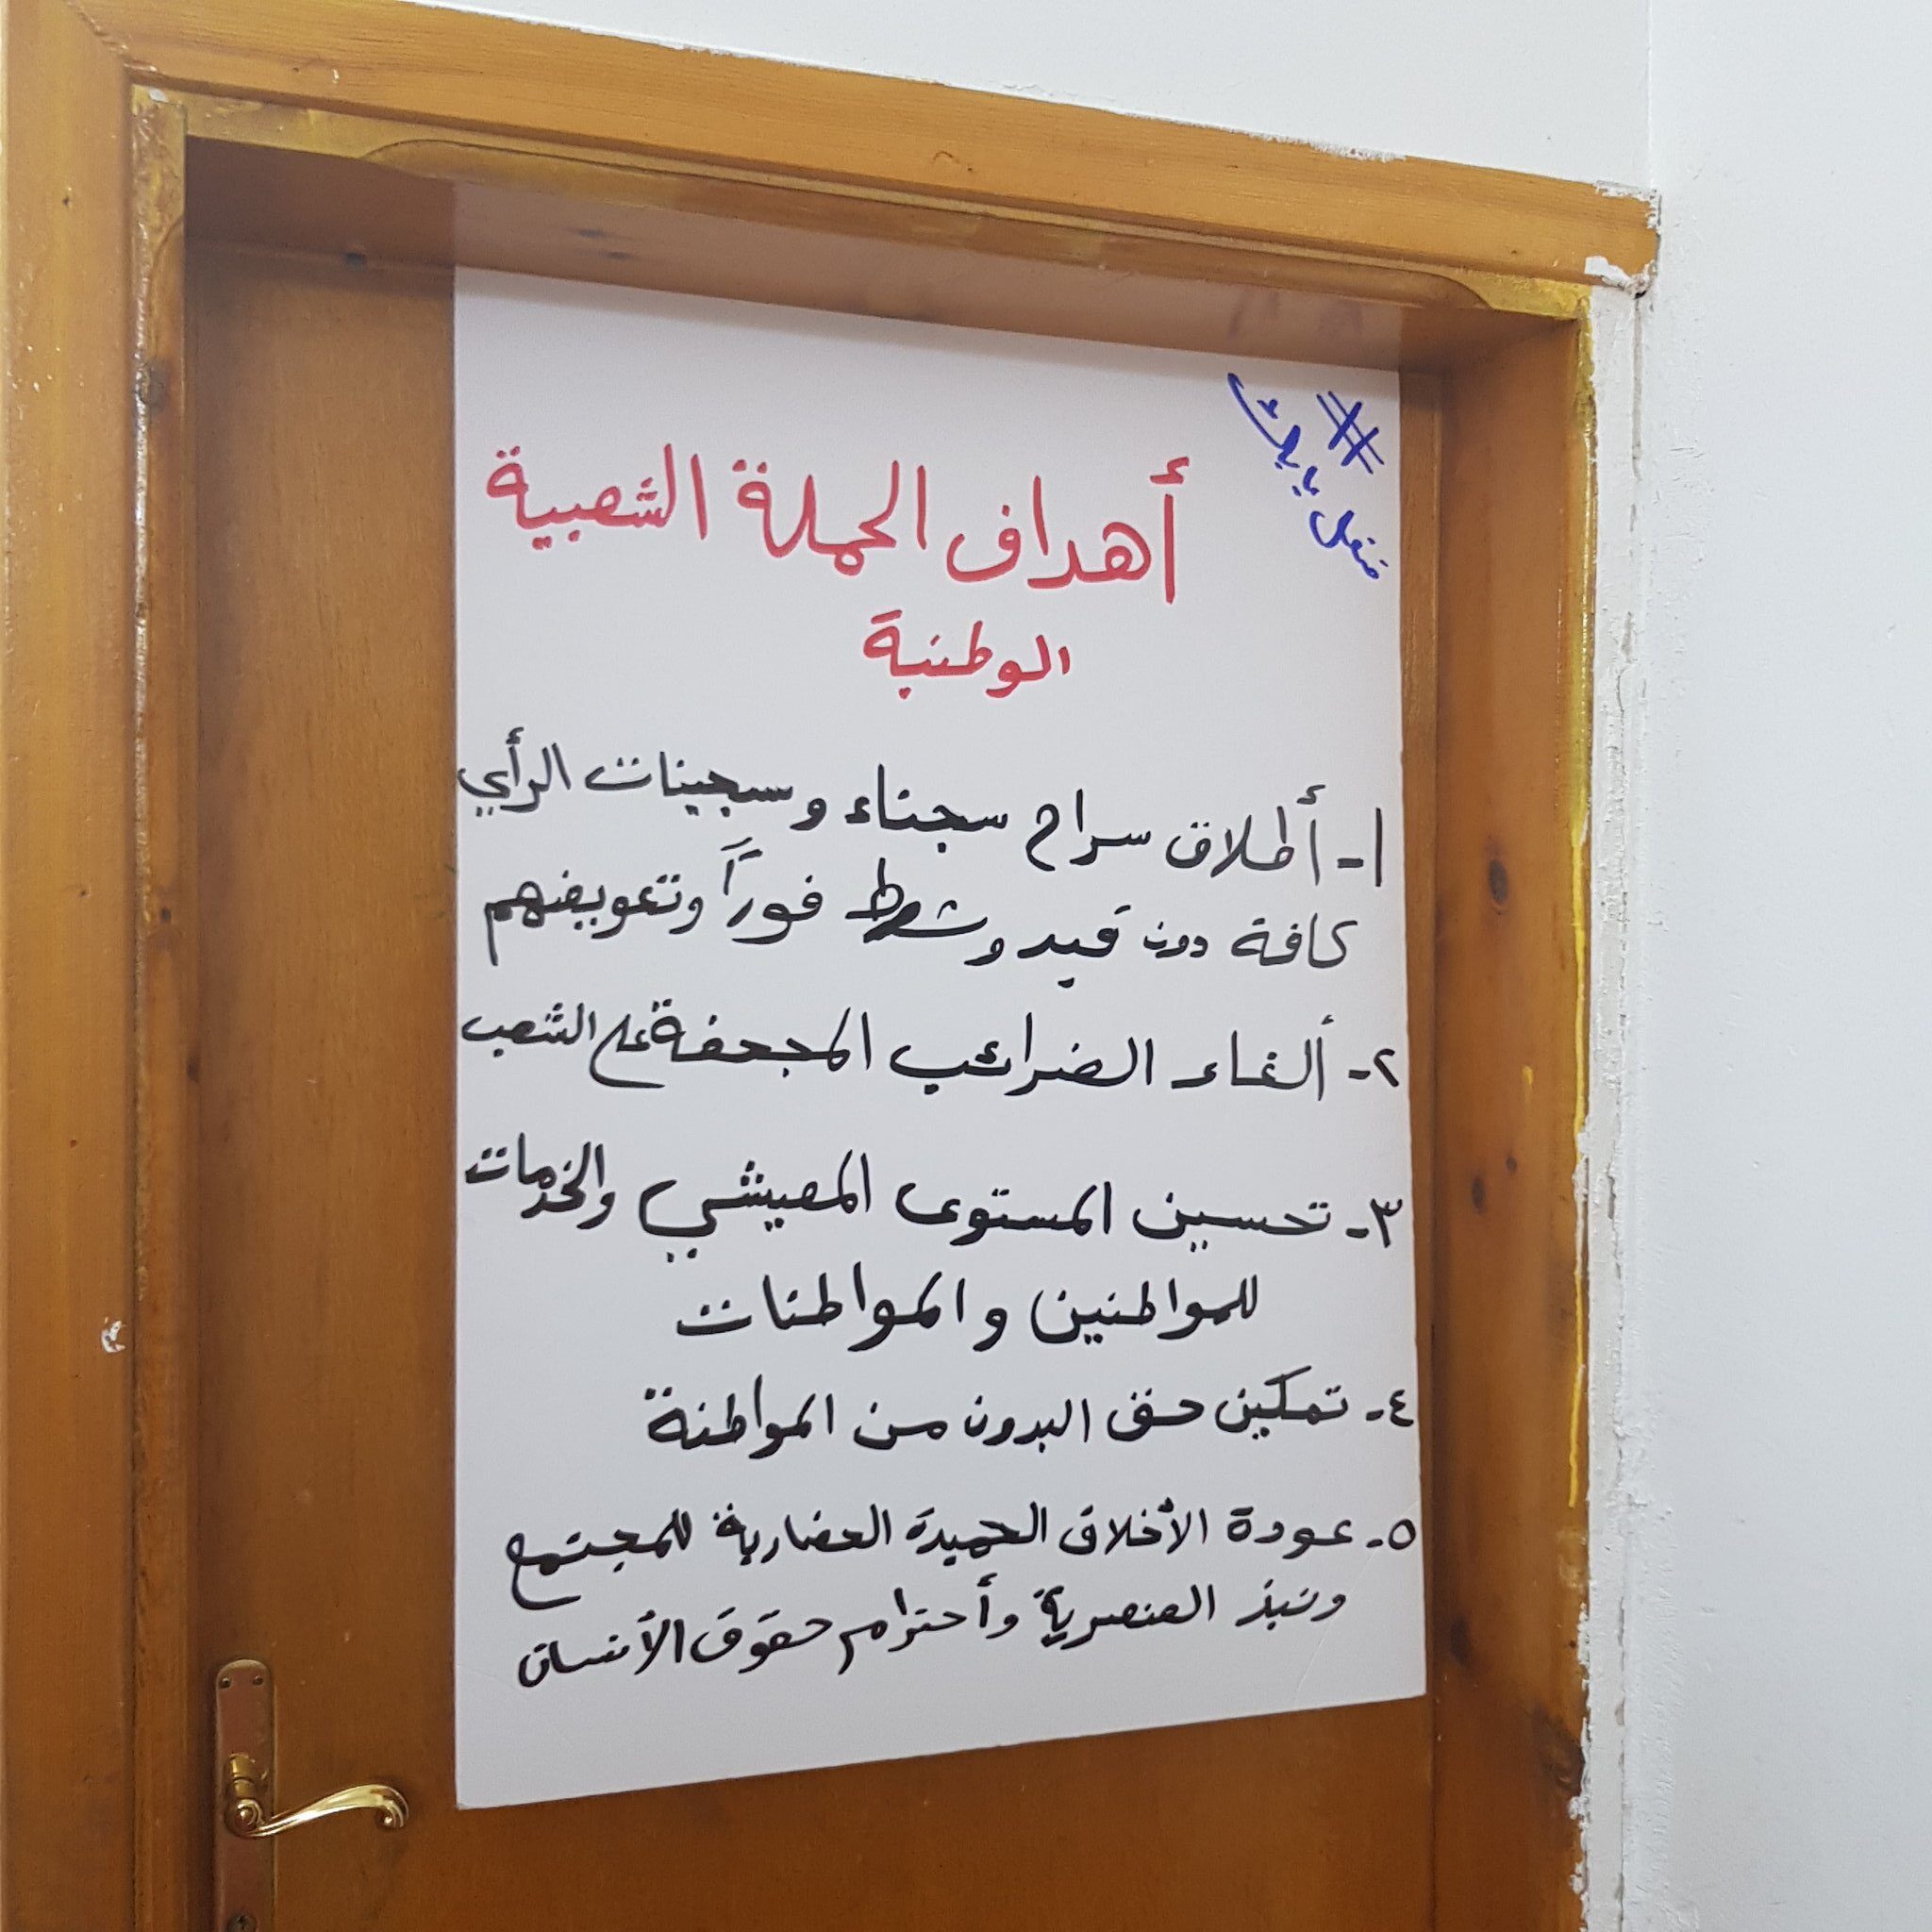 #
أهداف الحملة الشعبية
الوطنية
١- أطلاق سراح سجناء وسجينات الرأي
كافة دون قيد وشرط فوراً وتعويضهم
٢- ألغاء الضرائب المجحفة على الشعب
٣- تحسين المستوى المعيشي والخدمات
للمواطنين والمواطنات
٤- تمكين حق البدون من المواطنة
٥- عودة الأخلاق الحميدة الحضارية للمجتمع
ونبذ العنصرية وأحترام حقوق الأنسان